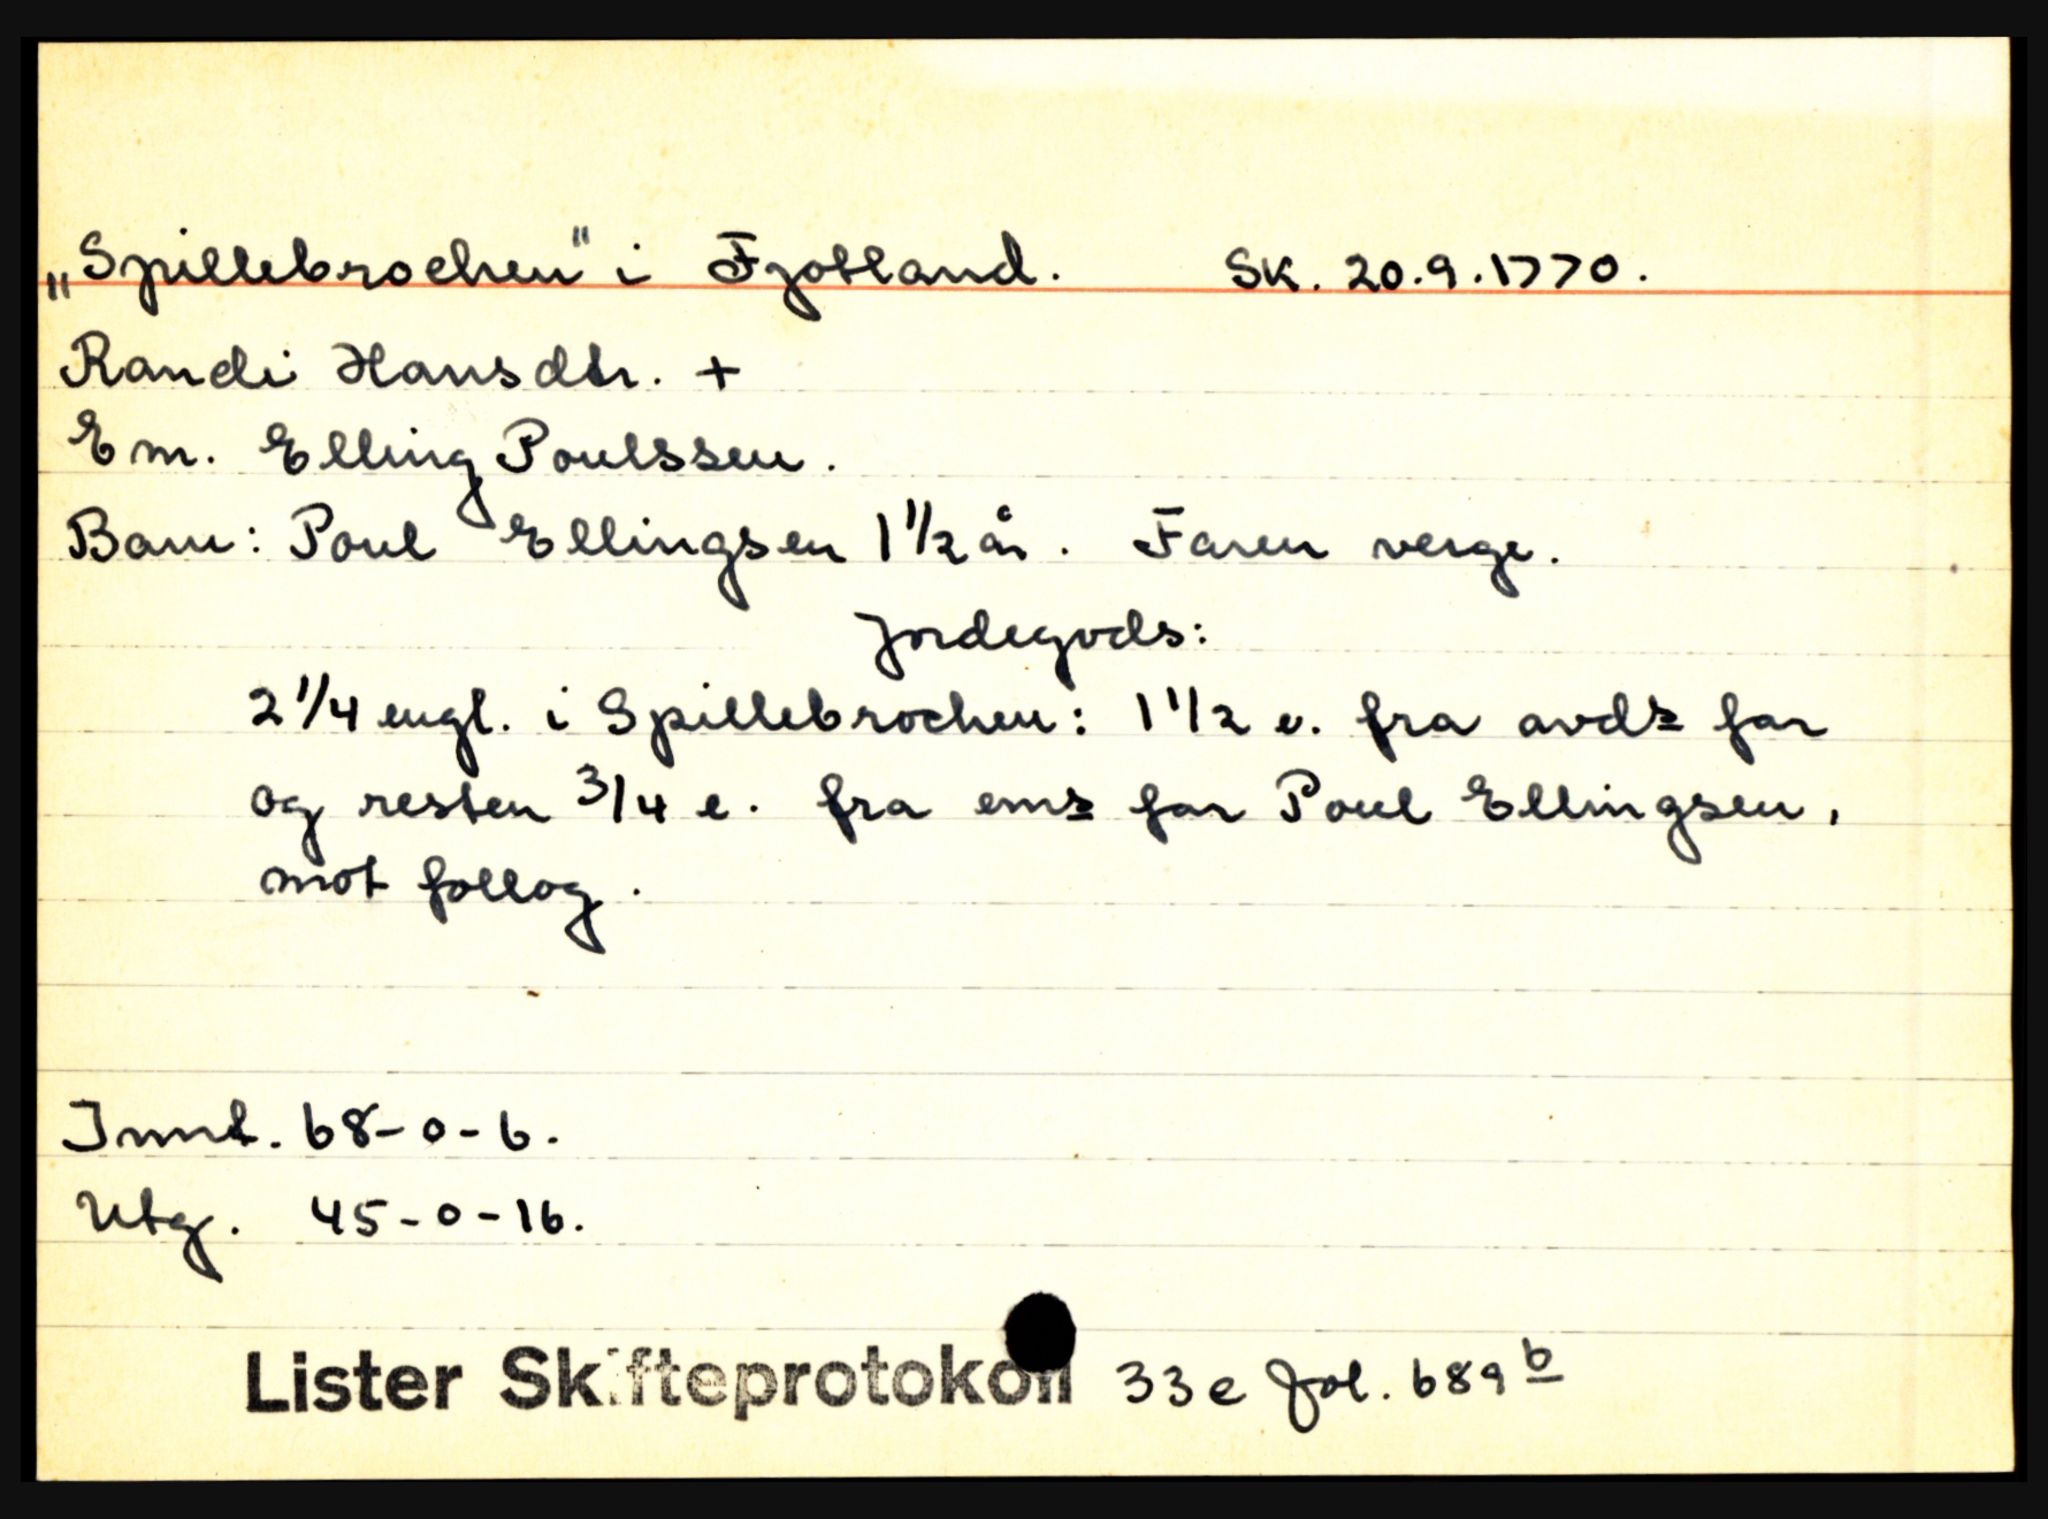 „Spillebrochen" i Fjotland. Sk. 20.9.1770.
Randi Hansdtr. +
Em. Elling Poulssen.
Barn: Poul Ellingsen 1 1/2 år. Faren verge.
Jordegods:
2 1/4 engl. i Spillebrochen: 1 1/2 e. fra avds far
og resten 3/4 e. fra ems far Poul Ellingsen,
mot follog.
Innt. 68-0-6.
Utg. 45-0-16.
Lister Skifteprotokoll 33e fol. 689 b